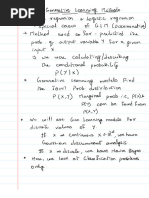 Generative Learning Methods
regression & logistic regression
special cases of GLM (Discriminative)
→ Method used so far: predicted the
prob of output variable Y for a given
input X
→ we were calculating/describing
the conditional probability
P(Y|X)
→ Generative Learning models: find
the joint Prob distribution
P(X,Y)
can be found from
P(X,Y)
→ We will see two learning models for
this course
If X → continuous X ∈ Rⁿ, we have
Gaussian discriminant analysis
If X is discrete, we have Naive Bayes
→ Here, we look at classification problems
only